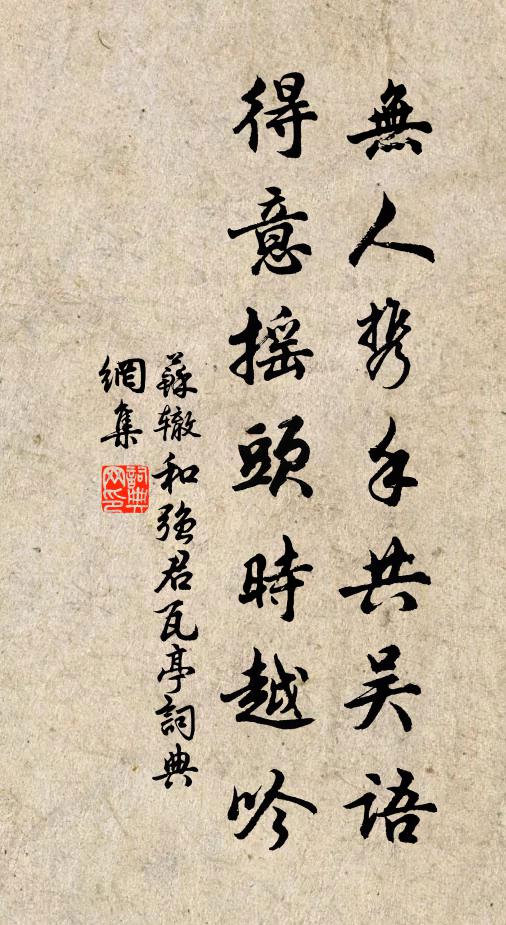 無人携手共吴語
得意摇頭時越吟
蘇辙和强君瓦亭詞典
網集
詞典網印